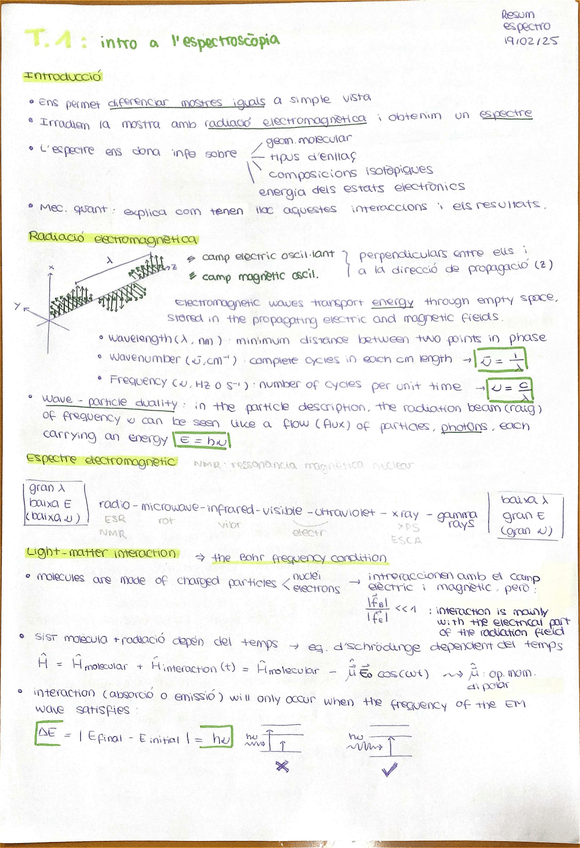 Resum
espectro
19/02/25
T.1: intro a l'espectroscòpia
Introducció
• Ens permet diferenciar mostres iguals a simple vista
• Irradien la mostra amb radiació electromagnètica i obtenim un espectre
• L'espectre ens dona info sobre
geom. molecular
tipus d'enllaç
composicions isotòpiques
energia dels estats electrònics
• Mec. quànt: explica com tenen lloc aquestes interaccions i els resultats.
Radiació electromagnètica
x
λ
z
y
* camp electric oscil·lant
* camp magnètic oscil.
perpendiculars entre ells i
a la direcció de propagació (z)
Electromagnetic waves transport energy through empty space,
stored in the propagating electric and magnetic fields.
• Wavelength (λ, nm): minimum distance between two points in phase
• Wavenumber (ν̃, cm⁻¹): complete cycles in each cm length → ν̃ = 1/λ
• Frequency (ν, Hz o s⁻¹): number of cycles per unit time → ν = c/λ
• Wave-particle duality: in the particle description, the radiation beam (raig)
of frequency ν can be seen like a flow (flux) of particles, photons, each
carrying an energy E = hν
Espectre electromagnètic NMR: ressonància magnètica nuclear
gran λ
baixa E
(baixa ν)
radio - microwave - infrared - visible - ultraviolet - x ray - gamma
rays
ESR rot vibr electr XPS
NMR ESCA
baixa λ
gran E
(gran ν)
Light-matter interaction ⇒ the Bohr frequency condition
• molecules are made of charged particles < nuclei
electrons
→ interaccionen amb el camp
elèctric i magnètic, però:
|f_B| / |f_e| << 1 : interaction is mainly
with the electrical part
of the radiation field
• Sist molecula + radiació depèn del temps → eq. d'schrödinge dependent del temps
Ĥ = Ĥmolecular + Ĥinteraction (t) = Ĥmolecular - μ̂ E₀ cos(ωt) ⤳ μ̂ : op. mom.
dipolar
• interaction (absorció o emissió) will only occur when the frequency of the EM
wave satisfies:
ΔE = | Efinal - Einitial | = hν
hν
✗
hν
✓